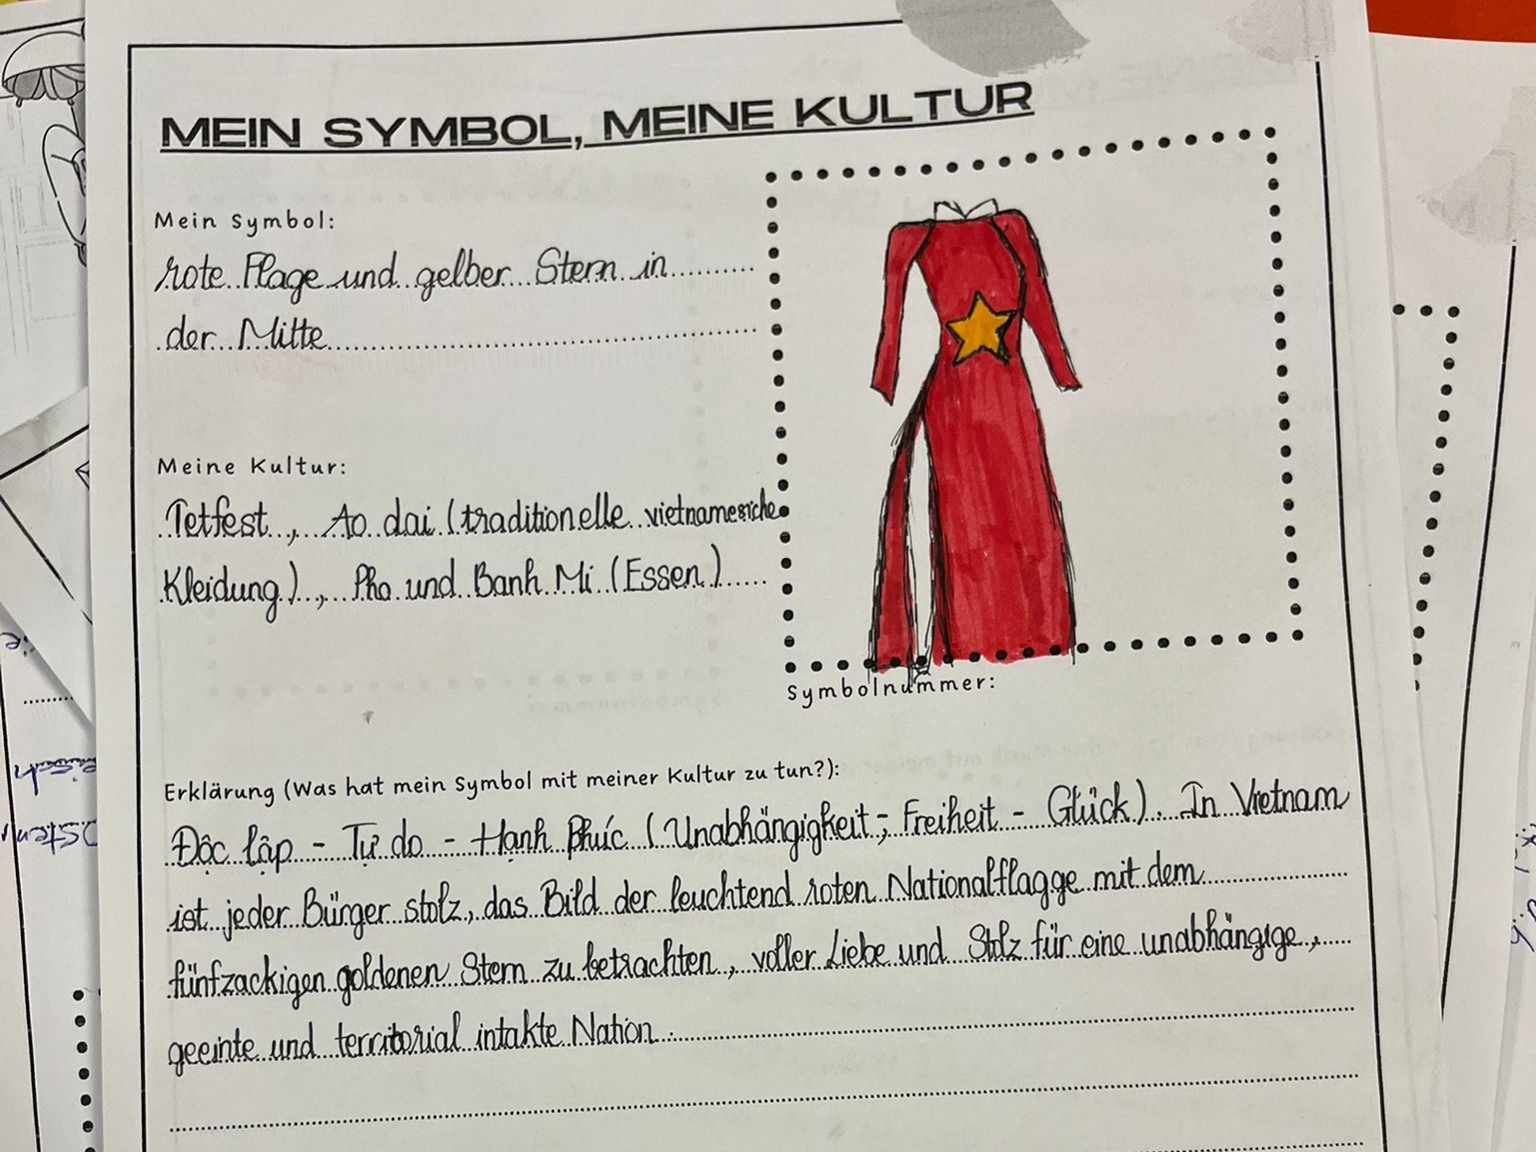 MEIN SYMBOL, MEINE KULTUR
Mein Symbol:
rote Flage und gelber Stern in
der Mitte
Meine Kultur:
Tetfest, Ao dai (traditionelle vietnamesiche
Kleidung), Pho und Banh Mi (Essen)
Symbolnummer:
Erklärung (Was hat mein Symbol mit meiner Kultur zu tun?):
Độc lập - Tự do - Hạnh Phúc (Unabhängigkeit - Freiheit - Glück). In Vietnam
ist jeder Bürger stolz, das Bild der leuchtend roten Nationalflagge mit dem
fünfzackigen goldenen Stern zu betrachten, voller Liebe und Stolz für eine unabhängige,
geeinte und territorial intakte Nation.